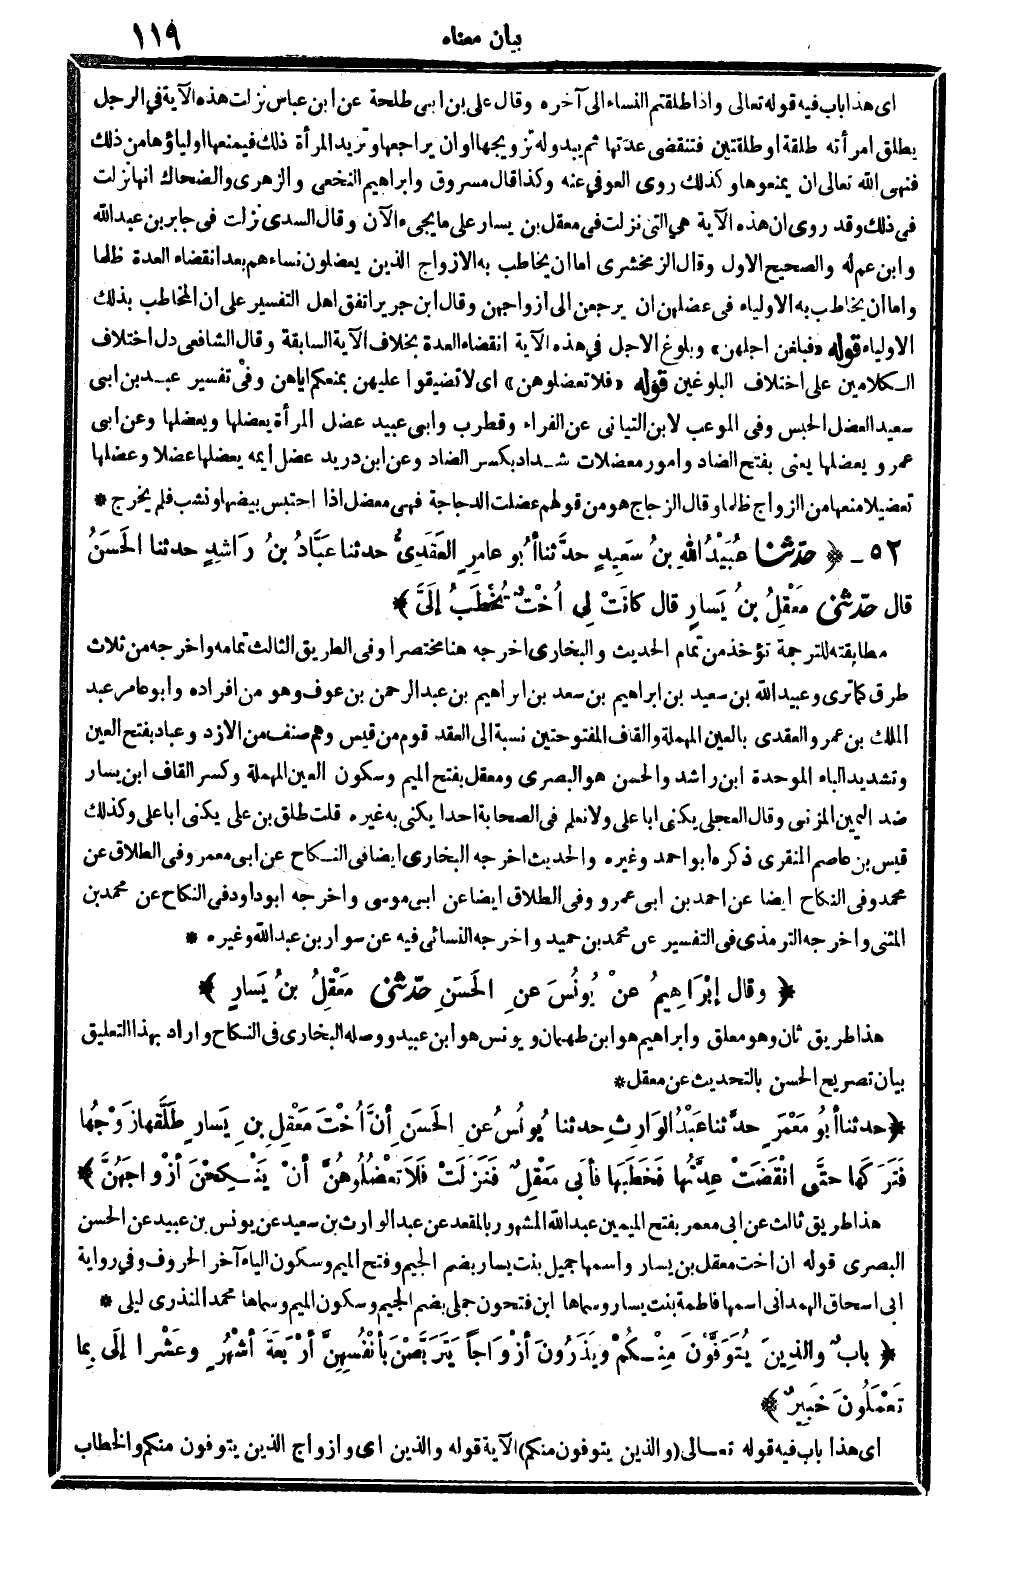 بيان معناه ١١٩
اى هذا باب فيه قوله تعالى واذا طلقتم النساء الى آخره وقال على بن ابى طلحة عن ابن عباس نزلت هذه الآية في الرجل
يطلق امرأته طلقة او طلقتين فتنقضى عدتها ثم يبدو له تزويجها وان يراجعها وتريد المرأة ذلك فيمنعها اولياؤها من ذلك
فنهى الله تعالى ان يمنعوها وكذلك روى العوفي عنه وكذا قال مسروق وابراهيم النخعى والزهرى والضحاك انها نزلت
في ذلك وقد روى ان هذه الآية هي التى نزلت في معقل بن يسار على ما يجىء الآن وقال السدى نزلت في جابر بن عبدالله
وابن عم له والصحيح الاول وقال الزمخشرى اما ان يخاطب به الازواج الذين يعضلون نساءهم بعد انقضاء العدة ظلما
واما ان يخاطب به الاولياء في عضلهن ان يرجعن الى أزواجهن وقال ابن جرير اتفق اهل التفسير على ان المخاطب بذلك
الاولياء قوله «فبلغن اجلهن» وبلوغ الاجل في هذه الآية انقضاء العدة بخلاف الآية السابقة وقال الشافعى دل اختلاف
الكلامين على اختلاف البلوغين قوله «فلا تعضلوهن» اى لا تضيقوا عليهن بمنعكم اياهن وفي تفسير عبد بن ابى
سعيد العضل الحبس وفى الموعب لابن التيانى عن الفراء وقطرب وابى عبيد عضل المرأة يعضلها ويعضلها وعن ابى
عمرو يعضلها يعنى بفتح الضاد وامور معضلات شداد بكسر الضاد وعن ابن دريد عضل ايمه يعضلها عضلا وعضلها
تعضيلا منعها من الزواج ظلما وقال الزجاج هو من قولهم عضلت الدجاجة فهى معضل اذا احتبس بيضها ونشب فلم يخرج *
٥٢ - ﴿ حدثنا عُبَيْدُ اللهِ بنُ سَعِيدٍ حدَّثنا أبُو عامِرٍ العَقَدِىُّ حدثنا عَبَّادُ بنُ رَاشِدٍ حدثنا الحَسَنُ
قال حدثنى مَعْقِلُ بنُ يَسارٍ قال كانَتْ لِي أُخْتٌ تُخْطَبُ إلَىَّ ﴾
مطابقته للترجمة تؤخذ من تمام الحديث والبخارى اخرجه هنا مختصرا وفى الطريق الثالث تمامه واخرجه من ثلاث
طرق كما ترى وعبيد الله بن سعيد بن ابراهيم بن سعد بن ابراهيم بن عبد الرحمن بن عوف وهو من افراده وابو عامر عبد
الملك بن عمرو العقدى بالعين المهملة والقاف المفتوحتين نسبة الى العقد قوم من قيس وهم صنف من الازد وعباد بفتح العين
وتشديد الباء الموحدة ابن راشد والحسن هو البصرى ومعقل بفتح الميم وسكون العين المهملة وكسر القاف ابن يسار
ضد اليمين المزنى وقال العجلى يكنى ابا على ولا نعلم في الصحابة احدا يكنى به غيره قلت طلق بن على يكنى ابا على وكذلك
قيس بن عاصم المنقرى ذكره ابو احمد وغيره والحديث اخرجه البخارى ايضا في النكاح عن ابى معمر وفى الطلاق عن
محمد وفى النكاح ايضا عن احمد بن ابى عمرو وفى الطلاق ايضا عن ابى موسى واخرجه ابو داود في النكاح عن محمد بن
المثنى واخرجه الترمذى في التفسير عن محمد بن حميد واخرجه النسائى فيه عن سوار بن عبدالله وغيره *
﴿ وقال إبْرَاهِيمُ عنْ يُونُسَ عنِ الحَسَنِ حدثنى مَعْقِلُ بنُ يَسارٍ ﴾
هذا طريق ثان وهو معلق وابراهيم هو ابن طهمان ويونس هو ابن عبيد ووصله البخارى في النكاح واراد بهذا التعليق
بيان تصريح الحسن بالتحديث عن معقل *
﴿ حدثنا أبُو مَعْمَرٍ حدَّثنا عَبْدُ الوَارِثِ حدثنا يُونُسُ عنِ الحَسَنِ أنَّ أُخْتَ مَعْقِلِ بنِ يَسارٍ طَلَّقَها زَوْجُها
فَتَرَكَها حتَّى انْقَضَتْ عِدَّتُها فَخَطَبَها فأبى مَعْقِلٌ فَنَزَلَتْ فَلاَ تَعْضُلُوهُنَّ أنْ يَنْكِحْنَ أزْوَاجَهُنَّ ﴾
هذا طريق ثالث عن ابى معمر بفتح الميمين عبدالله المشهور بالمقعد عن عبد الوارث بن سعيد عن يونس بن عبيد عن الحسن
البصرى قوله ان اخت معقل بن يسار واسمها جميل بنت يسار بضم الجيم وفتح الميم وسكون الياء آخر الحروف وفي رواية
ابى اسحاق الهمدانى اسمها فاطمة بنت يسار وسماها ابن فتحون جملى بضم الجيم وسكون الميم وسماها محمد المنذرى ليلى *
﴿ بابٌ والذِينَ يُتَوَفَّوْنَ مِنْكُمْ ويَذَرُونَ أزْوَاجاً يَتَرَبَّصْنَ بأنْفُسِهِنَّ أرْبَعَةَ أشْهُرٍ وعَشْراً إلَى بِما
تَعْمَلُونَ خَبِيرٌ ﴾
اى هذا باب فيه قوله تعالى (والذين يتوفون منكم) الآية قوله والذين اى وازواج الذين يتوفون منكم والخطاب